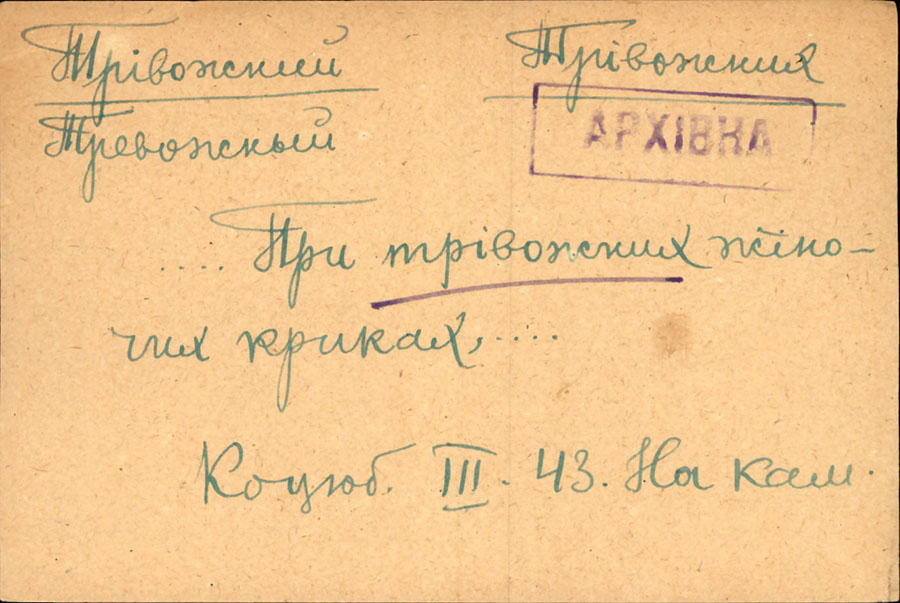 Трівожний Трівожних
Тревожный
АРХІВКА
.... При трівожних жіно-
чих криках,....
Коцюб. III. 43. На кам.